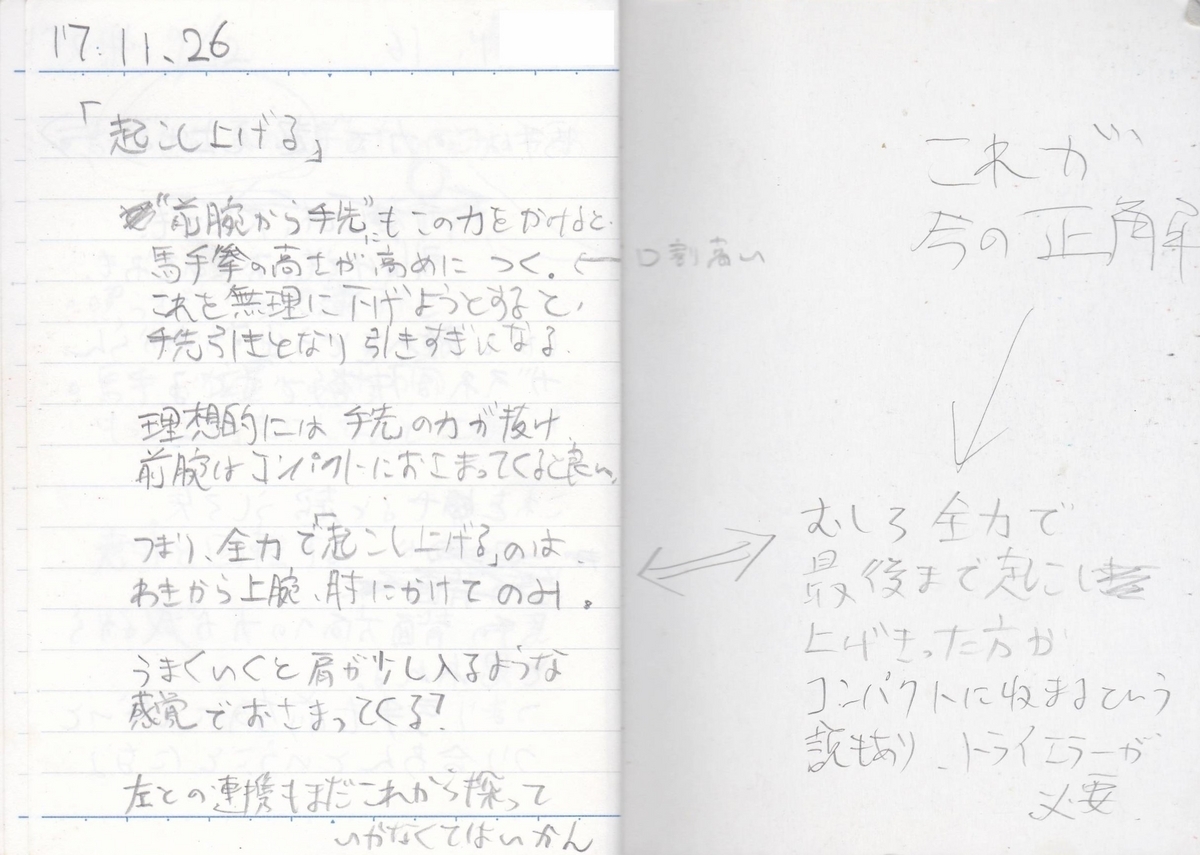 17.11.26
「起こし上げる」
"前腕から手先"にもこの力をかけると、
馬手拳の高さが高めにつく。← 口割高い
これを無理に下げようとすると、
手先引きとなり引きすぎになる。
理想的には手先の力が抜け、
前腕はコンパクトにおさまってくると良い。
つまり、全力で「起こし上げる」のは、
わきから上腕、肘にかけてのみ。
うまくいくと肩が少し入るような
感覚でおさまってくる?
左との連携もまだこれから探って
いかなくてはいかん
これが
今の正解
むしろ全力で
最後まで起こし
上げきった方が
コンパクトに収まるという
説もあり、トライエラーが
必要.